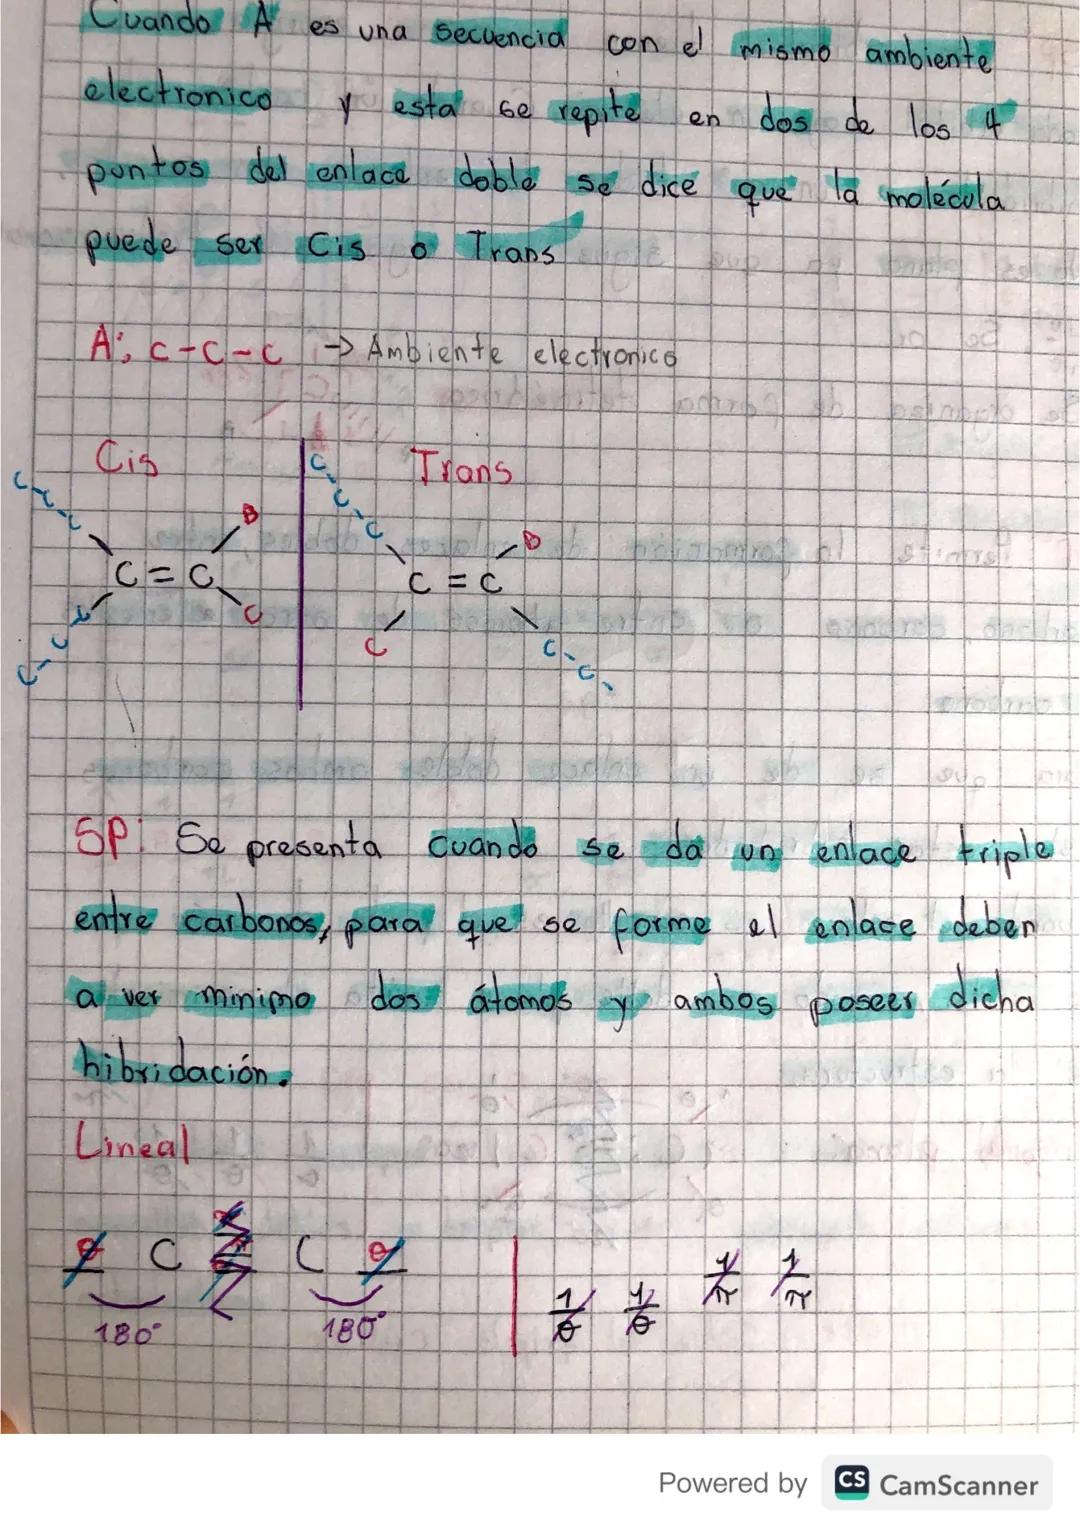 Cuando A es una secuencia con el mismo ambiente
electronico y esta se repite en dos de los 4
puntos del enlace doble se dice que la molécula
puede ser Cis o Trans
A: C-C-C → Ambiente electronico
Cis
Trans
C-C-C
B
C = C
C-C-C
C
C-C-C
B
C = C
C
C-C-
SP: Se presenta cuando se da un enlace triple
entre carbonos, para que se forme el enlace deben
a ver minimo dos átomos y ambos poseer dicha
hibridación.
Lineal
C C
180° 180°
1 1 1 1
θ θ π π
Powered by CS CamScanner